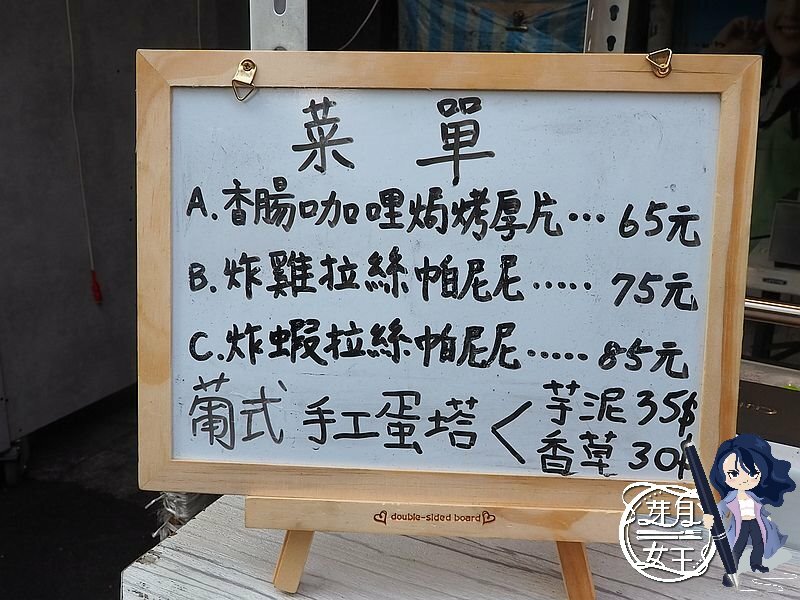 菜單
A.香腸咖哩焗烤厚片… 65元
B.炸雞拉絲帕尼尼…… 75元
C.炸蝦拉絲帕尼尼…… 85元
葡式手工蛋塔<芋泥 35$
香草 30$
double-sided board
芽月
女王